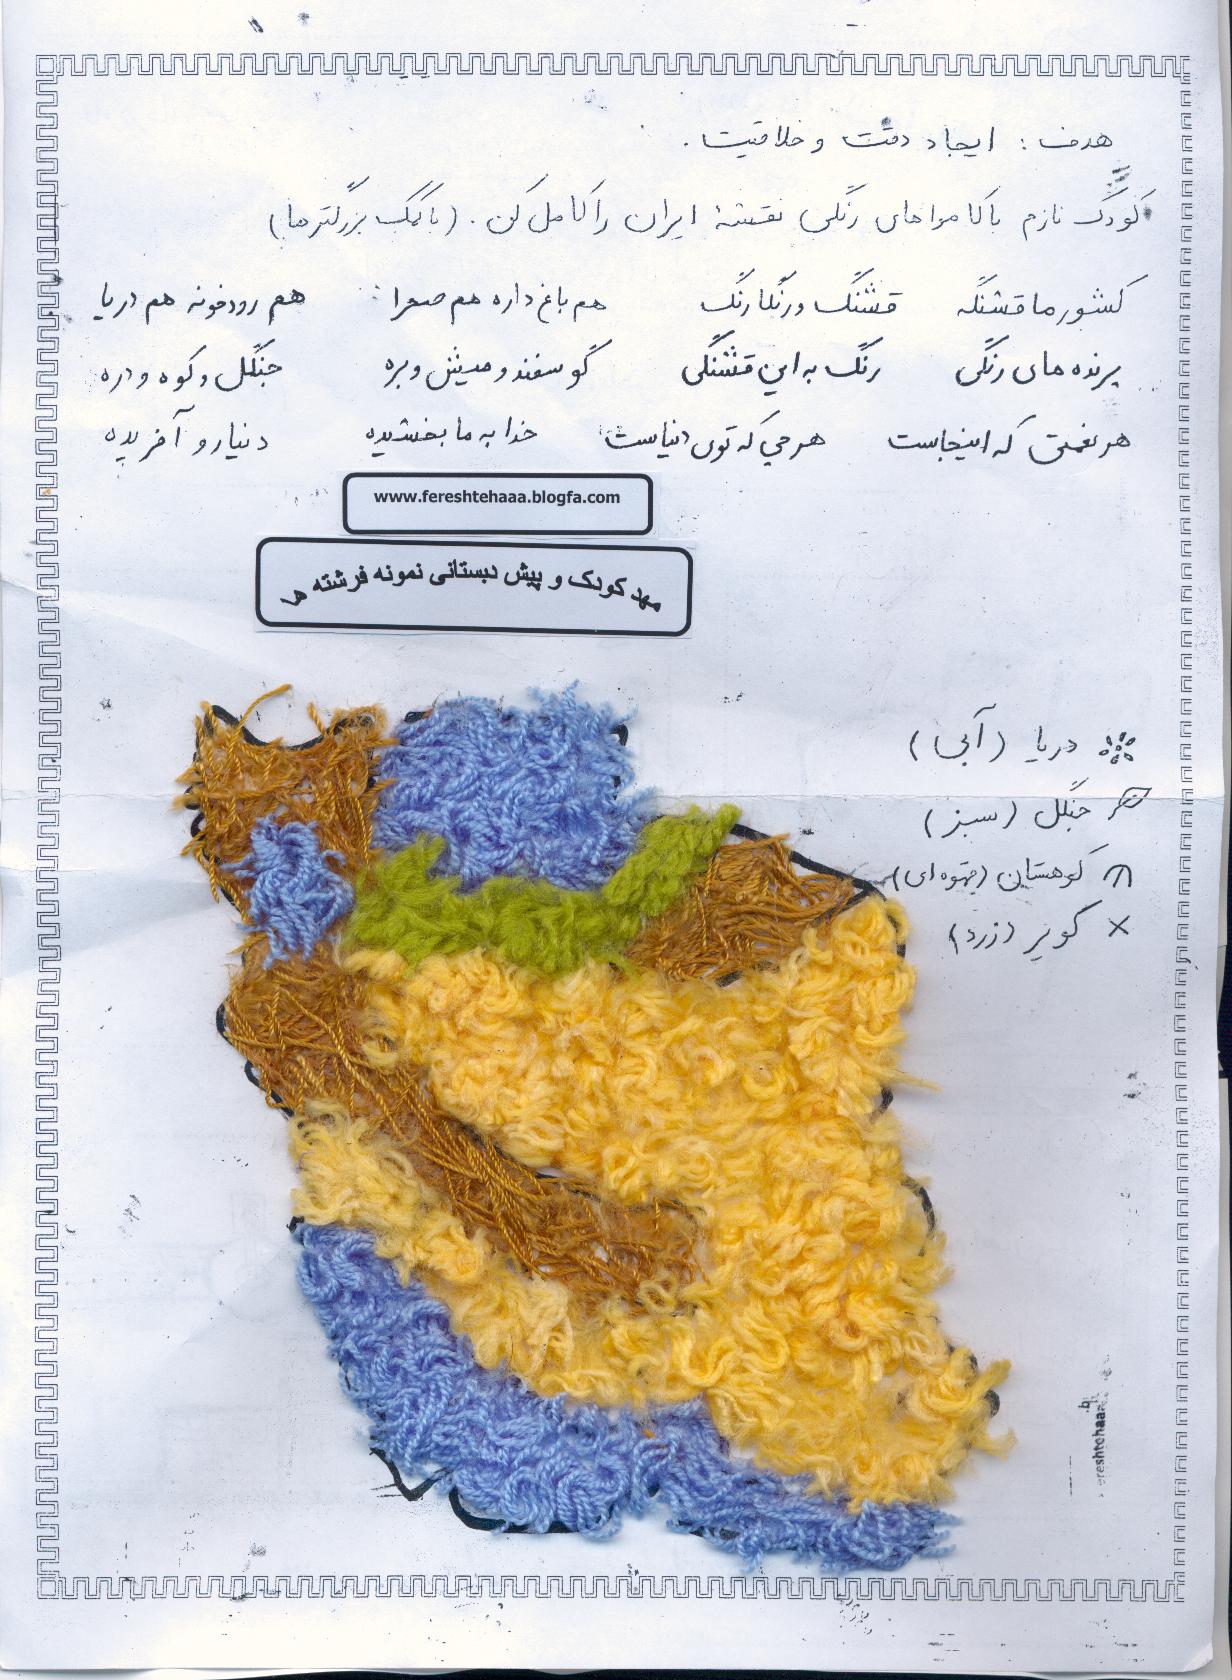 هدف : ایجاد دقت و خلاقیت .
کودک نازم با کامواهای رنگی نقشهٔ ایران را کامل کن . (با کمک بزرگترها)
کشور ما قشنگه قشنگ و رنگارنگ هم باغ داره هم صحرا هم رودخونه هم دریا
پرنده های رنگی رنگ به این قشنگی گوسفند و میش و بره جنگل و کوه و دره
هر نعمتی که اینجاست هر چی که توی دنیاست خدا به ما بخشیده دنیا رو آفریده
www.fereshtehaaa.blogfa.com
مهد کودک و پیش دبستانی نمونه فرشته ها
دریا (آبی)
جنگل (سبز)
کوهستان (قهوه ای)
× کویر (زرد)